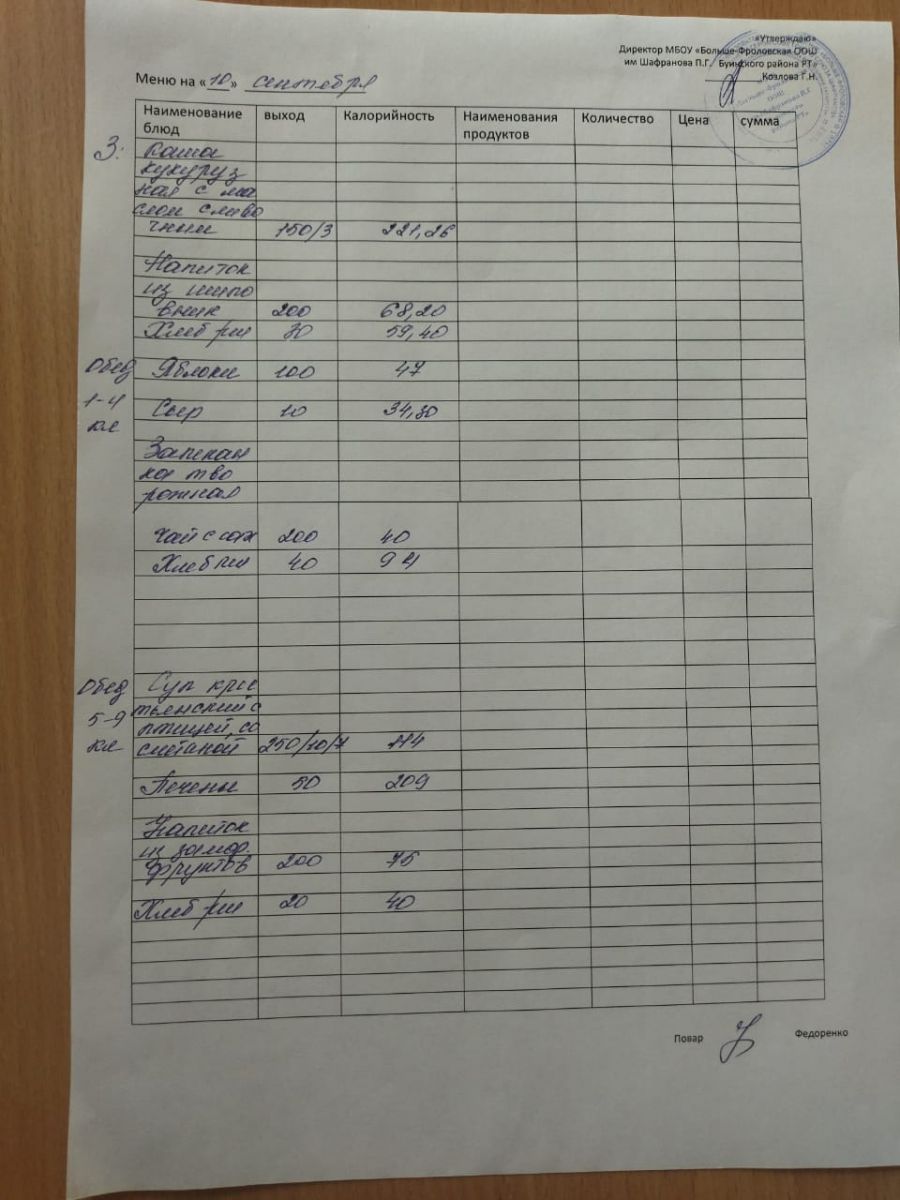 «Утверждаю»
Директор МБОУ «Больше-Фроловская ООШ
им Шафранова П.Г. Буинского района РТ»
Козлова Г.Н.
Меню на «10» сентября
Наименование блюд выход Калорийность Наименования продуктов Количество Цена сумма
З. Каша
кукуруз
ная с ма
слом сливо
чным 150/3 221,26
Напиток
из шипо
вник 200 68,20
Хлеб рж 30 59,40
Обед Яблоки 100 47
1-4 Сыр 10 34,30
кл
Запекан
ка тво
рожная
Чай с сах 200 40
Хлеб рж 40 94
Обед Суп крес
5-9 тьянский с
птицей, со
кл сметаной 250/10/7 114
Печень 50 209
Напиток
из замор.
фруктов 200 75
Хлеб рж 20 40
Повар Федоренко